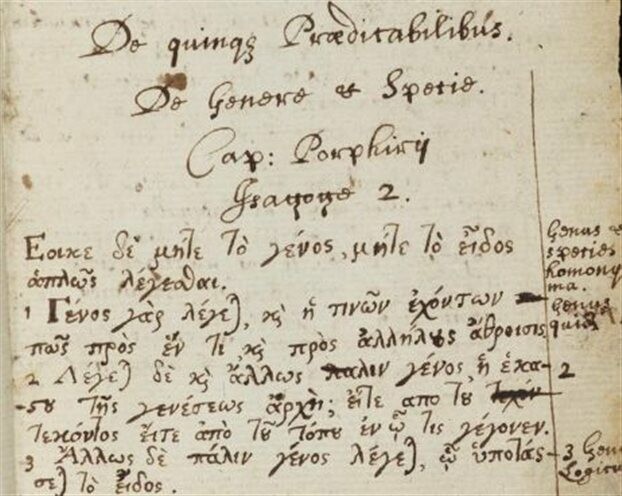 De quinqꝫ Prædicabilibus.
De Genere et Specie.
Cap: Porphirij
Isagoge 2.
Εοικε δὲ μήτε τὸ γένος, μήτε τὸ εἶδος
ἁπλῶς λέγεσθαι.
1 Γένος γὰρ λέγε), κὶ ἡ τινῶν ἐχόντων
πῶς προς ἕν τι κὶ πρὸς ἀλλήλȣς ἄθροισις
2 Λέγε) δὲ κὶ ἄλλως παλιν γένος, ἡ ἑκα-
-ϛȣ τῆς γενέσεως ἀρχὴ; εἴτε απο τȣ
τεκόντος εἴτε ἀπὸ τȣ͂ τόπȣ ἐν ᾧ τις γέγονεν.
3 Ἄλλως δὲ πάλιν γένος λέγε), ᾧ ὑποτάσ-
σε) τὸ εἶδος.
Genus et
species
homony
ma.
Genus
quid
2
3 Gen
Logicu